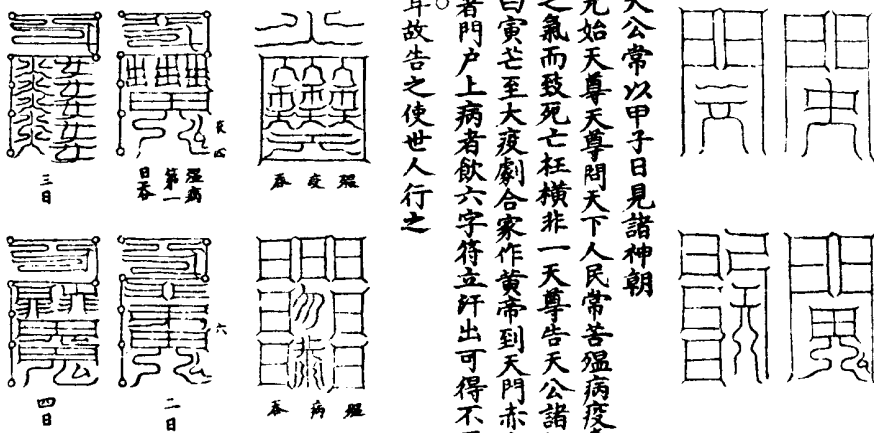 天公常以甲子日見諸神朝
元始天尊天尊問天下人民常苦殟病疫
之氣而致死亡枉橫非一天尊告天公諸
曰寅芒至大疫劇合家作黃帝到天門赤
者門户上病者飲六字符立汗出可得不
耳故告之使世人行之
殟疫吞
殟病吞
殟病
第一
日吞
六
二日
三日
四日